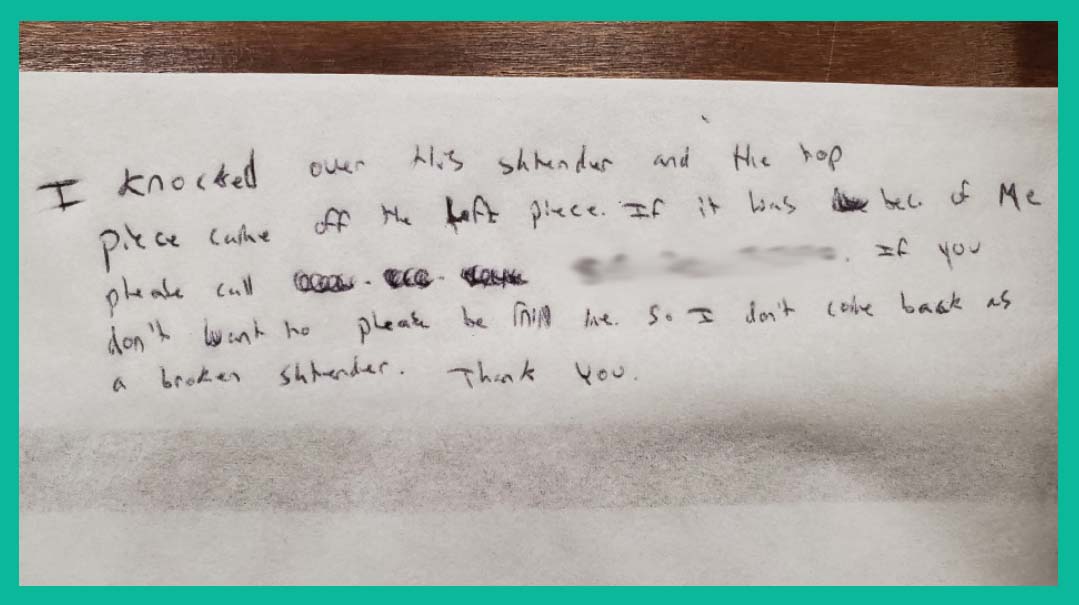 I knocked over this shtender and the top
piece came off the left piece. If it was bec. of Me
please call . If you
don't want to please be מוחל me. So I don't come back as
a broken shtender. Thank You.